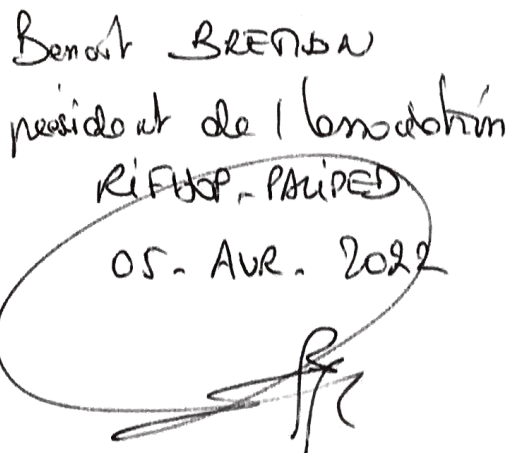 Benoît BRETTON
président de l'association
RIFHOP-PALIPED
05- AVR- 2022